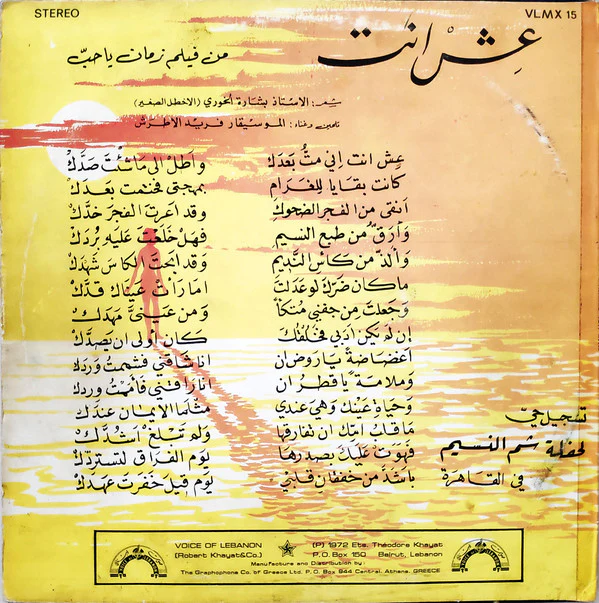 STEREO
VLMX 15
عِش انت
من فيلم زمان يا حبّ
شعر: الاستاذ بشارة الخوري (الاخطل الصغير)
تلحين وغناء: الموسيقار فريد الاطرش
عِش انت إني متُّ بعدك وأطل الى ما شئت صدّك
كانت بقايا للغرام بمهجتي فختمت بعدك
أنقى من الفجر الضحوك وقد اعرت الفجر خدّك
وأرقّ من طبع النسيم فهل خلعت عليه بردك
وألذّ من كأس النديم وقد ابحت الكأس شهدك
ما كان ضرّك لو عدلت اما رأت عيناك قدّك
وجعلت من جفني متكأ ومن عينيّ مهدك
إن لم يكن ادبي فخُلقك كان أولى ان يصدّك
أغضاضة يا روض ان انا شاقني فشممت وردك
وملامة يا قطر ان انا راقني فأممت وردك
وحياة عينك وهي عندي مثلما الإيمان عندك
ما قلب امك ان تفارقها ولم تبلغ اشدّك
فهوت عليك بصدرها يوم الفراق لتستردّك
بأشدّ من خفقان قلبي يوم قيل خفرت عهدك
تسجيل حيّ
لحفلة شم النسيم
في القاهرة
VOICE OF LEBANON
(Robert Khayat&Co.)
(P) 1972 Ets. Théodore Khayat
P.O. Box 150 Beirut, Lebanon
Manufacture and Distribution by:
The Graphophone Co. of Greece Ltd. P.O. Box 844 Central. Athens. GREECE